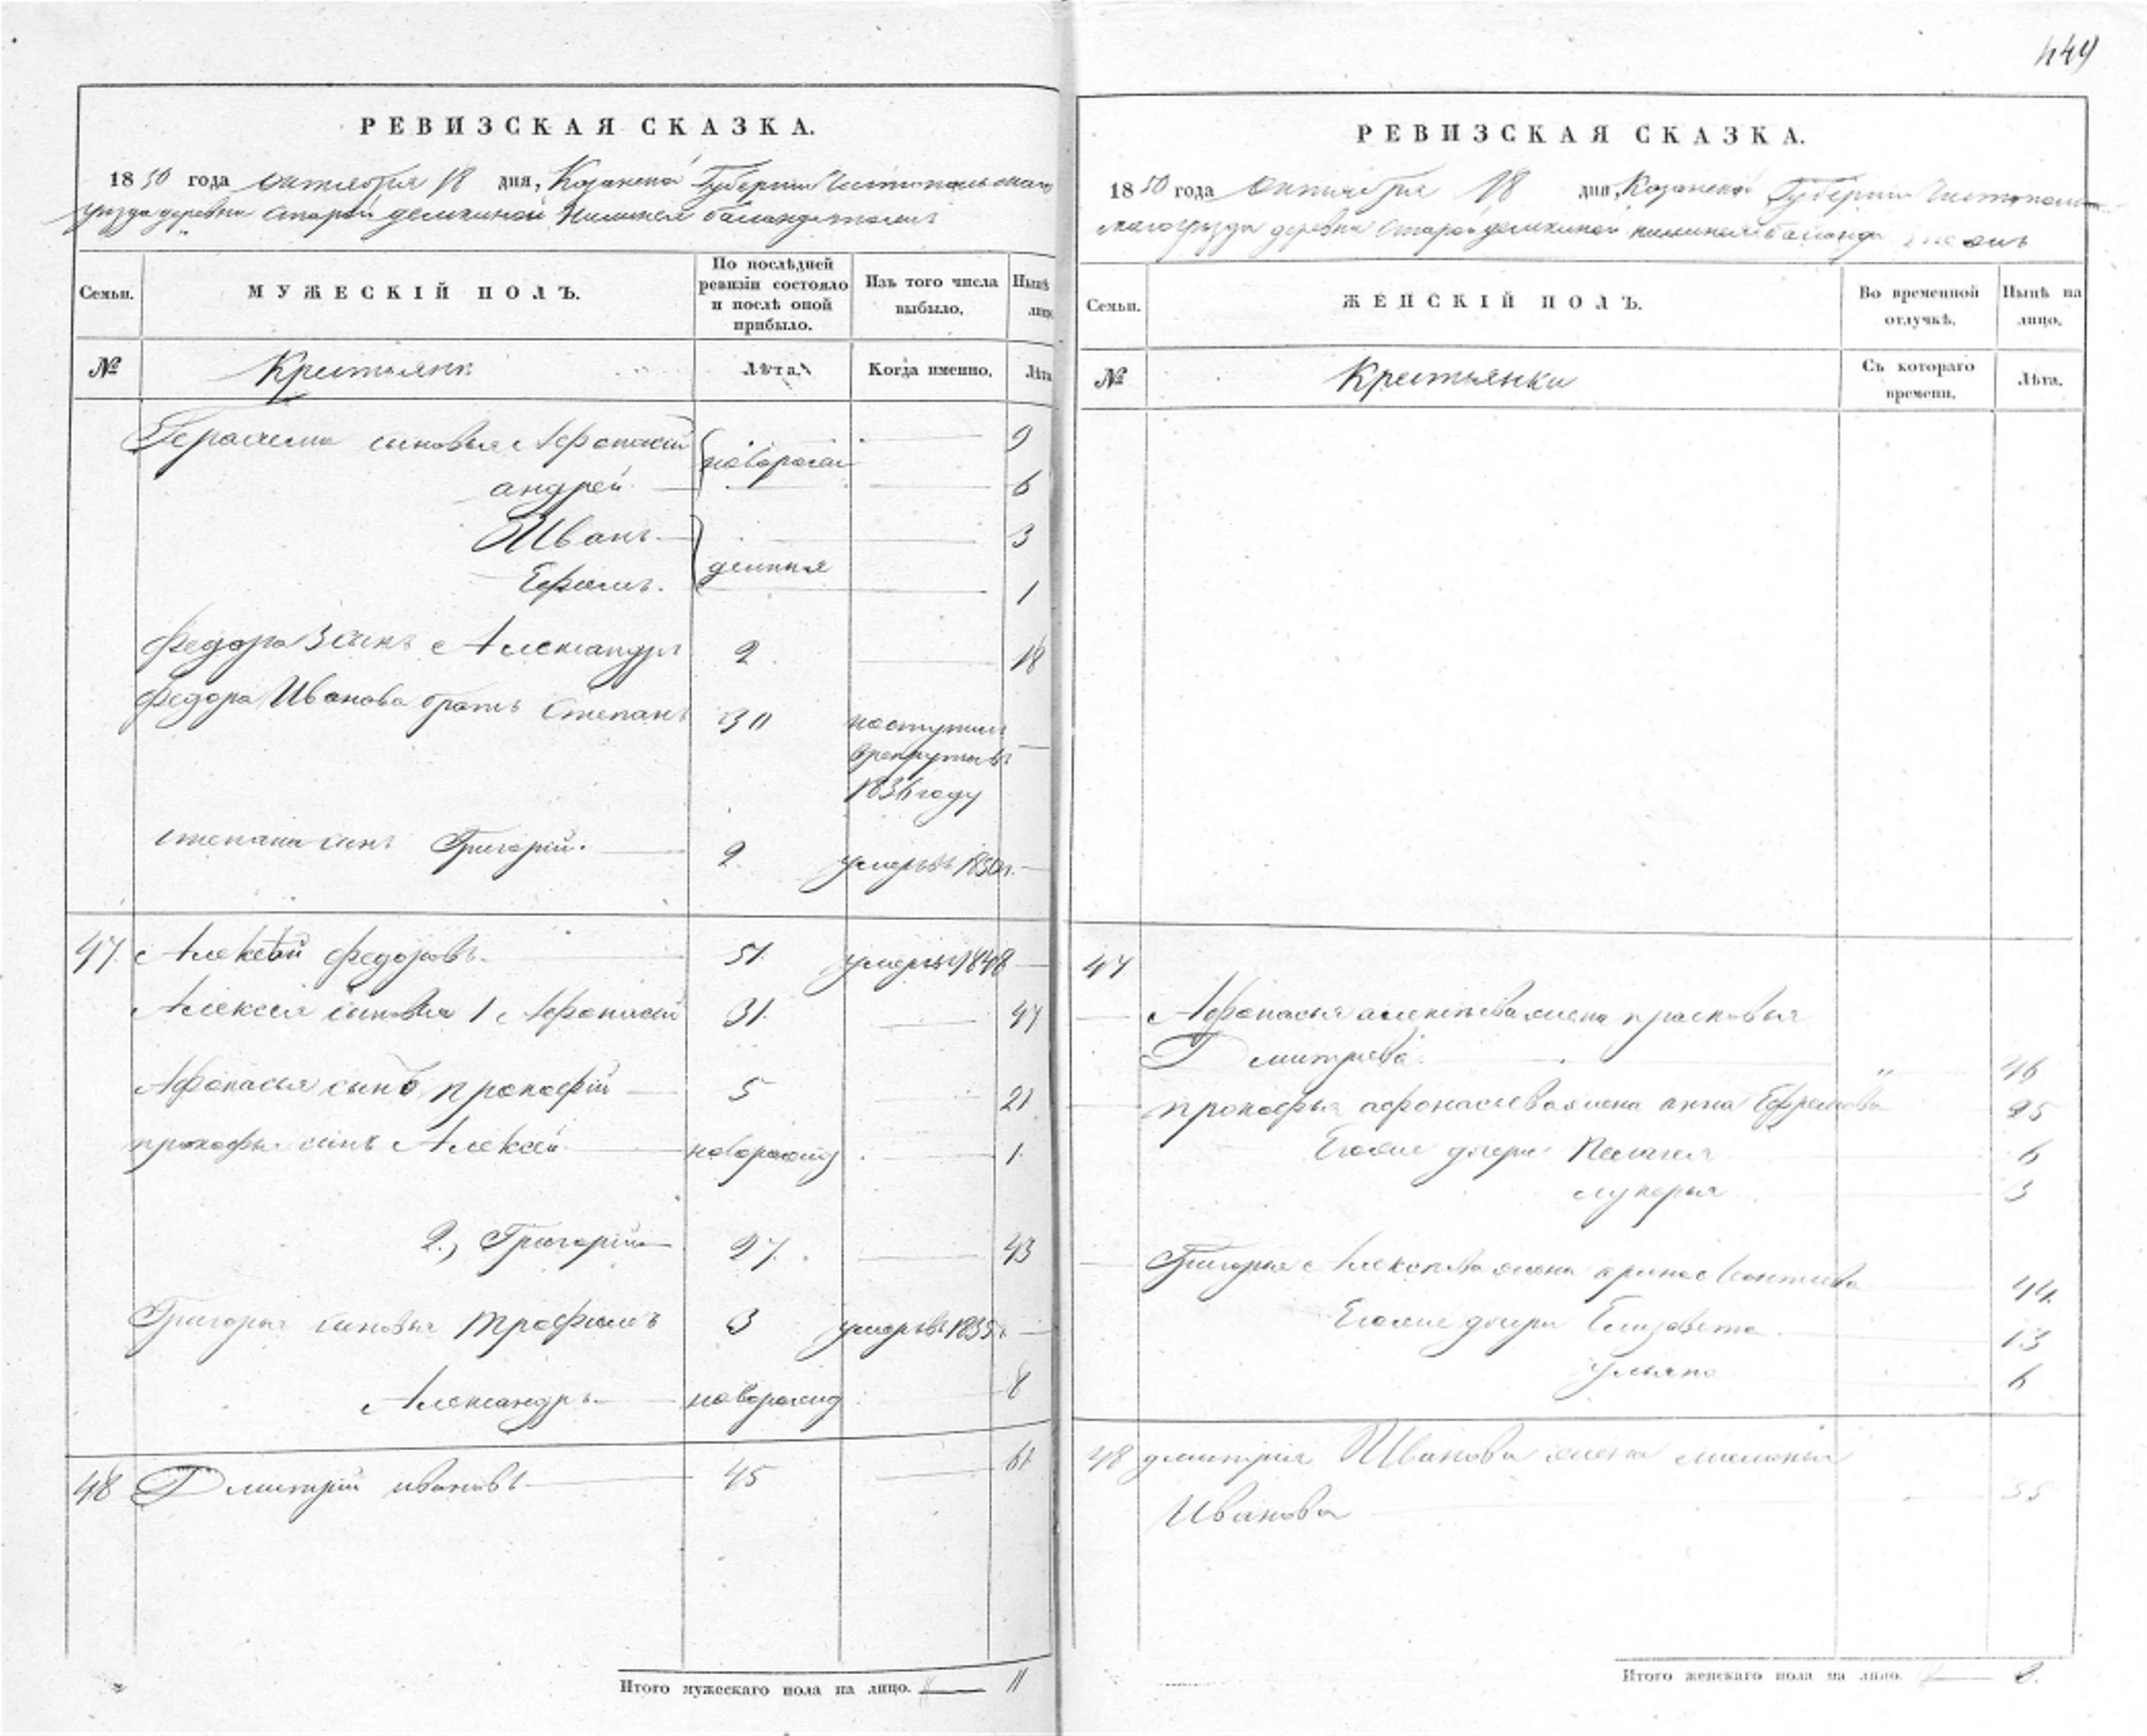 449
РЕВИЗСКАЯ СКАЗКА.
1850 года октября 18 дня, Казанской Губернии Чистопольскаго
уезда деревни Старой демкиной
Семьи.
МУЖЕСКІЙ ПОЛЪ.
По послѣдней ревизіи состояло и послѣ оной прибыло.
Изъ того числа выбыло.
Нынѣ лицо
№
Крестьяне
Лѣта.
Когда именно.
Лѣта
Герасима сыновья Афонасий 9
андрей 6
новорож
Иванъ 3
денныя
Ефимъ. 1
Федора 3 сынъ Александръ 2 18
Федора Иванова братъ Степанъ 30 поступилъ
врекруты въ
1836 году
степана сынъ Григорий. 2 умеръ въ 1850 г.
47. Алексей Федоровъ 51 умеръ 1848
Алексея сыновья 1 Афонасий 31. 47
Афонасья сынъ прокофий 5 21
прокофья сынъ Алексей новорожд 1
2., Григорий 27. 43
Григорья сыновья Трофимъ 3 умеръ въ 1835 г.
Александръ новорожд 8
48 Дмитрий ивановъ 45 61
Итого мужескаго пола на лицо. 11
РЕВИЗСКАЯ СКАЗКА.
1850 года Октября 18 дня, Казанской Губернии Чистополь
скаго уезда деревни Старой демкиной
Семьи.
ЖЕНСКІЙ ПОЛЪ.
Во временной отлучкѣ.
Нынѣ на лицо.
№
Крестьянки
Съ котораго времени.
Лѣта.
47
Афонасья алексеева жена прасковья
Дмитриева 46
прокофья афонасьева жена анна Ефремова 25
Ево же дочери Пелагея 6
лукерья 3
Григорья Алексеева жена арина Леонтьева 44
Ево же дочери Елизавета 13
ульяна 6
48 дмитрия Иванова жена маланья
Иванова 55
Итого женскаго пола на лицо. 8.